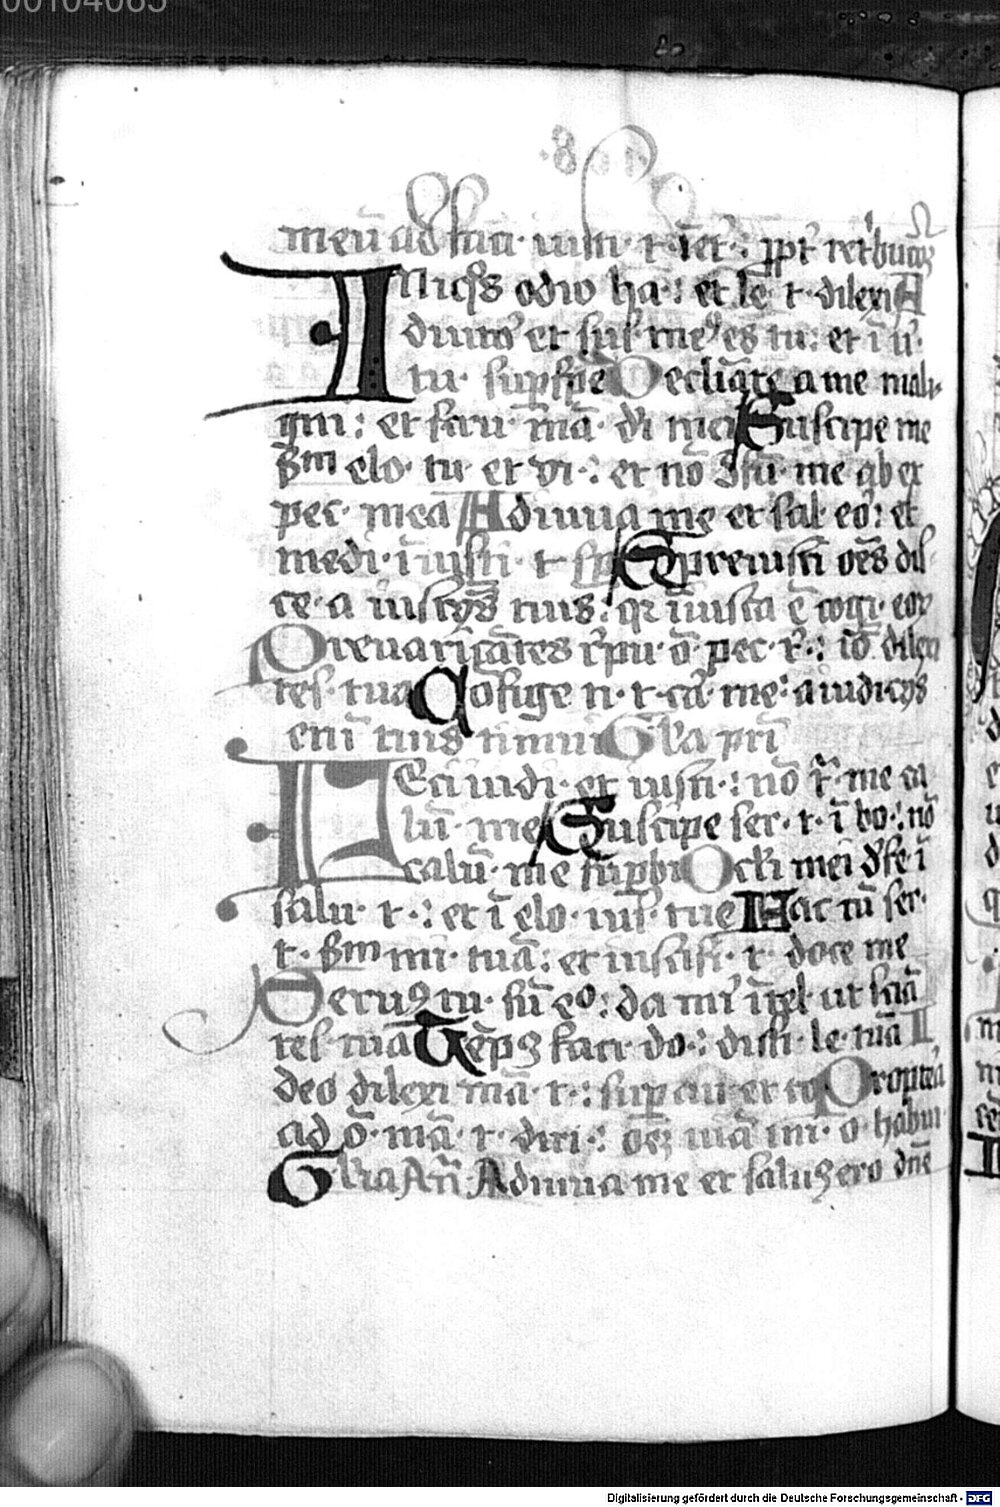 00104085
meū ad faci· iusti· t· ī et· : ꝓpt̄ ret͛bucōꝫ
INiq̄s odio ha· : et lē· t· dilexi A
diutor et sus· me⁹ es tu: et ī u͛·
tu· suꝑspe Declīate a me mali-
gni: et scru· mā· dī mei Suscipe me
sm elo· tu· et vi· : et nō 9fū· me ab ex
pec· mea Adiuua me et sal· eo͛: et
medi· ī iusti· t· sp Spreuisti oēs dis-
ce· a iusticijs tuis: qr iniusta ē cogi· eoꝝ
Preuaricātes r̄pu· ō· pec· t͛· : iō dilexi
tes· tua Cōfige ti· t· ca͛· me: a iudicijs
enī tuis timui Gl̄a pri
FEci iudi· et iusti· : nō t͛· me ca
lū· me Suscipe ser· t· ī bo· : nō
calū· me suꝑbi Ocl̄i mei dfe· ī
salu· t· : et ī elo· ius· tue Fac cū ser·
t· sm mi· tuā: et iustifi· t· doce me
Seru⁹ tu· sū eo: da mī ītel· ut sciā
tes· tua Tēpꝰ faci· do· : dissi· le· tuā I
deo dilexi mā· t· : suꝑ au· et to Proptea
ad ō· mā· t· diri· : oēꝫ uiā ini· o· habui
Gl̄ia An̄ Adiuua me et saluꝰ ero dn̄e
Digitalisierung gefördert durch die Deutsche Forschungsgemeinschaft - DFG